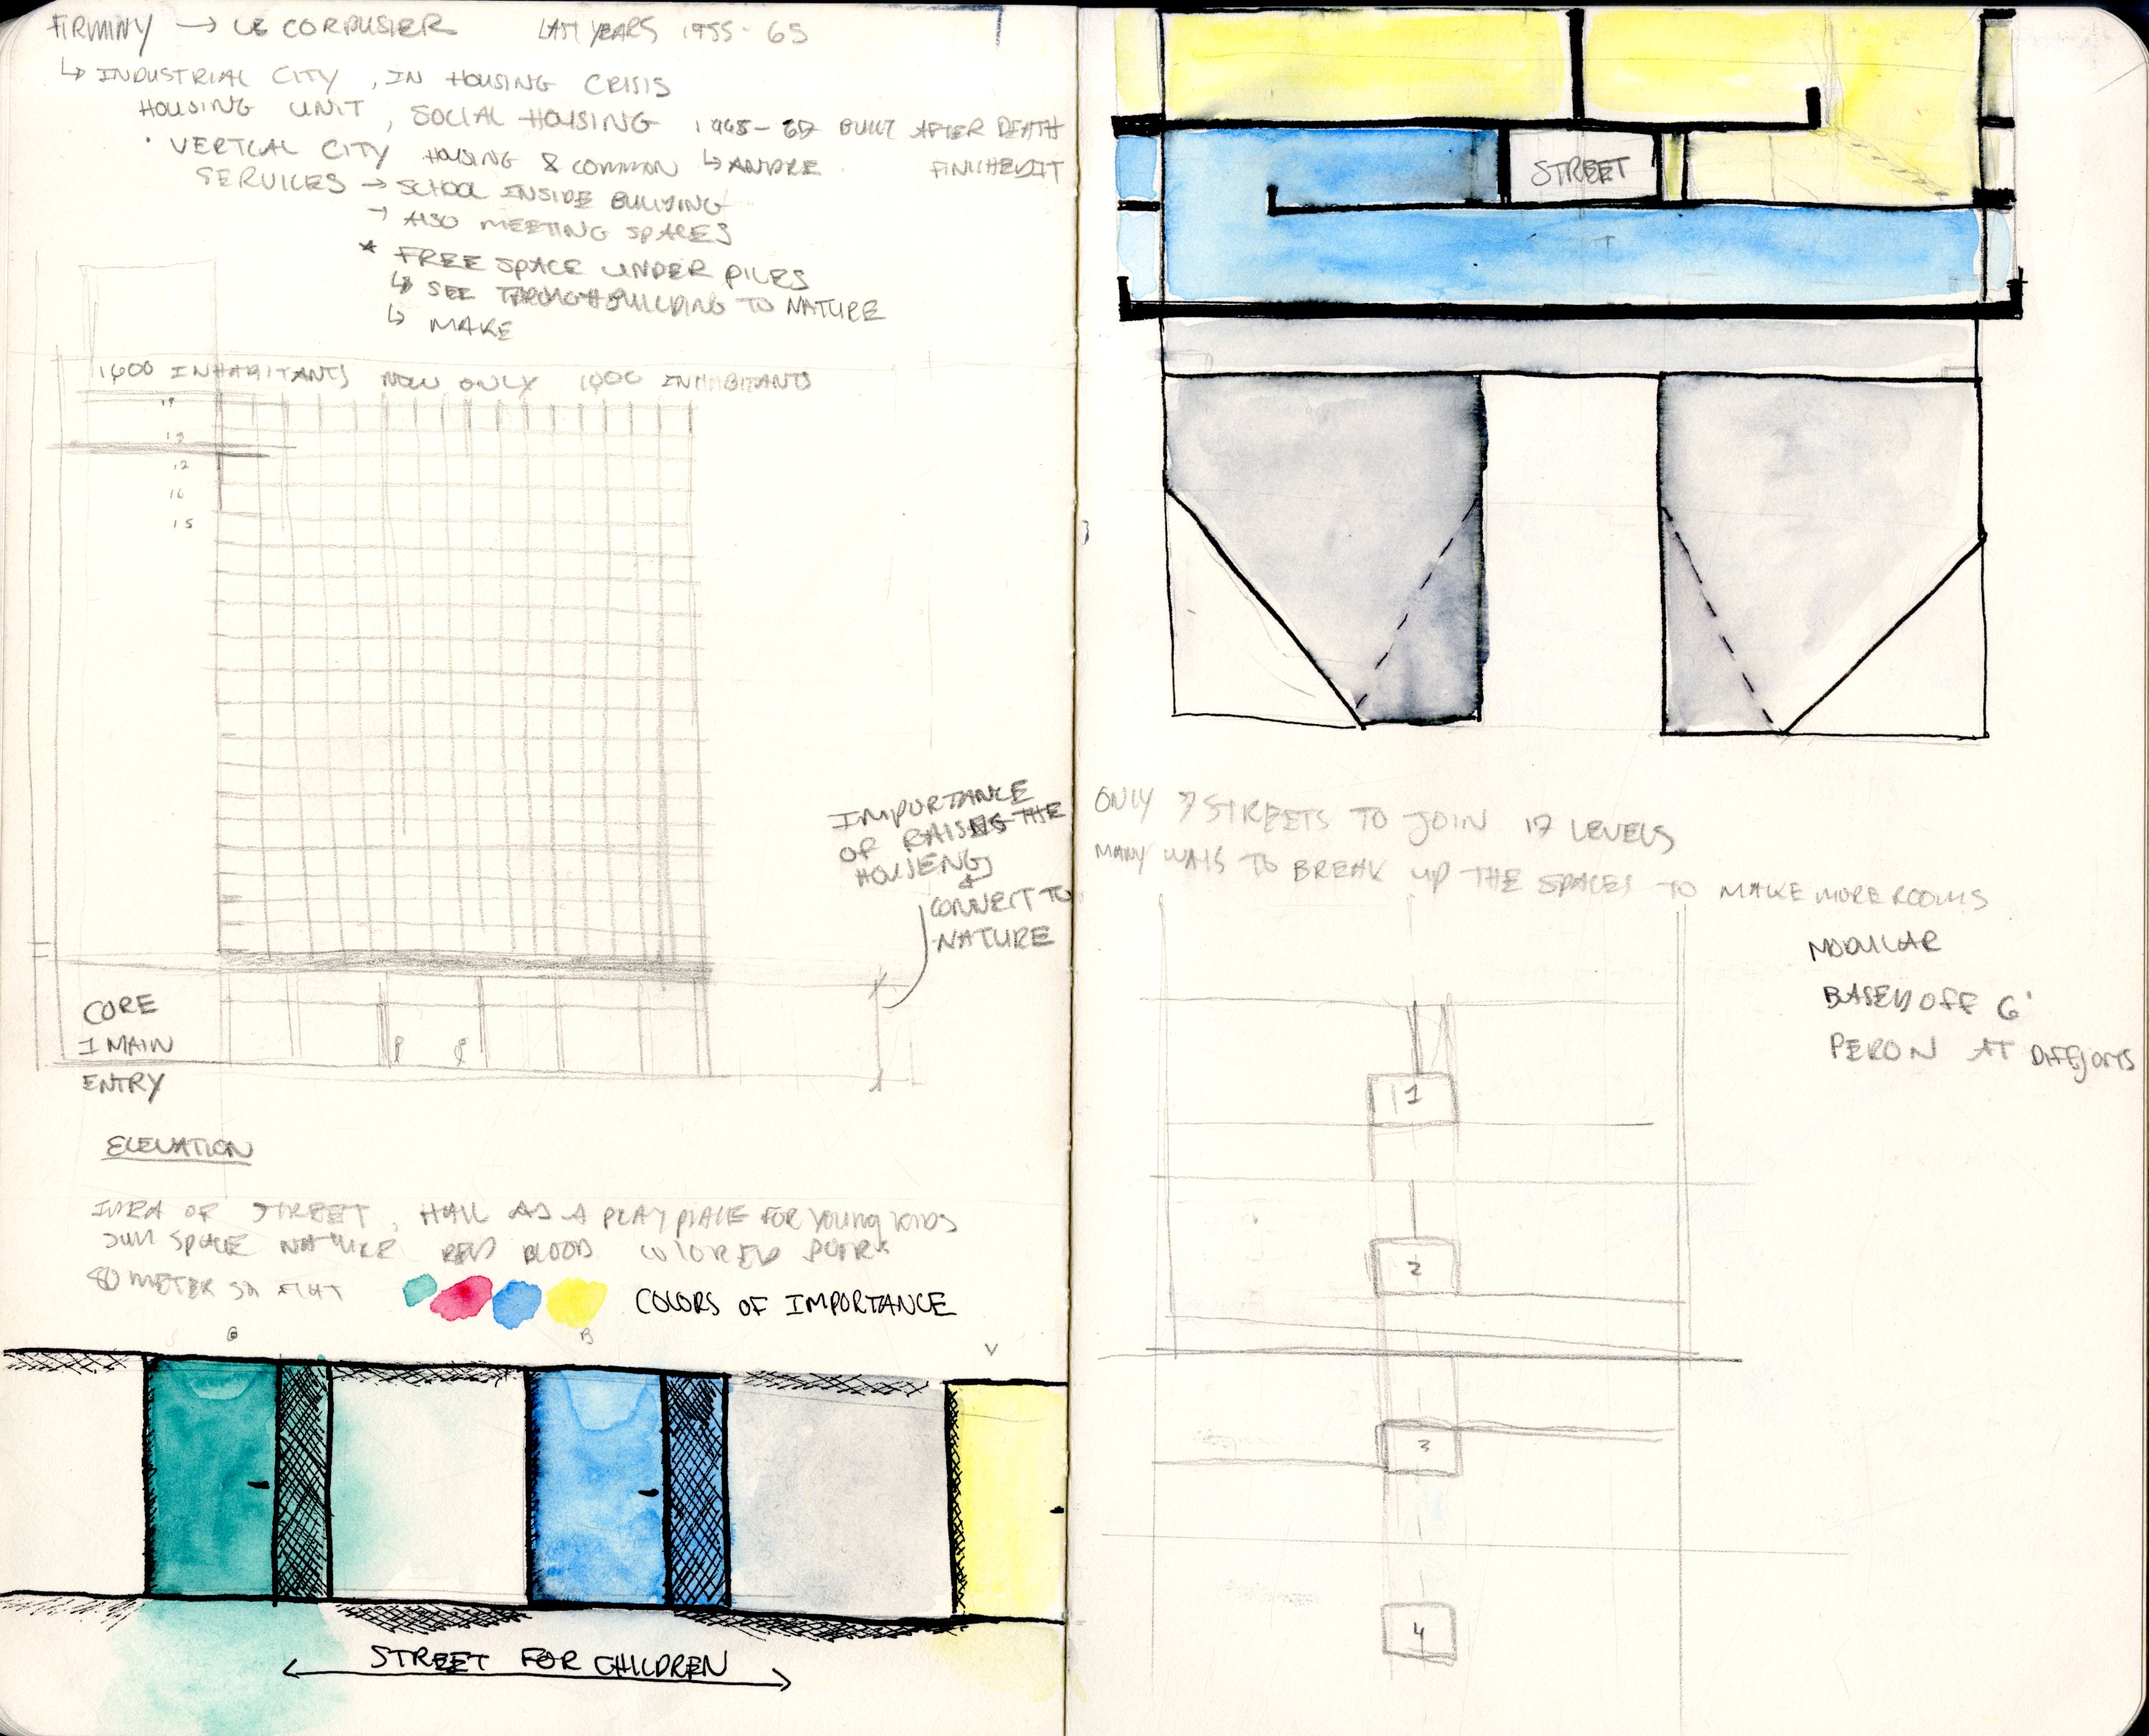 FIRMINY → LE CORPUSIER LAST YEARS 1955-65
↳ INDUSTRIAL CITY, IN HOUSING CRISIS
HOUSING UNIT, SOCIAL HOUSING BUILT AFTER DEATH
• VERTICAL CITY HOUSING & COMMON ↳ ANDRE FINISHED IT
SERVICES → SCHOOL INSIDE BUILDING
→ ALSO MEETING SPACES
* FREE SPACE UNDER PILES
↳ SEE THROUGH BUILDING TO NATURE
↳ MAKE
INHABITANTS NOW ONLY INHABITANTS
15
IMPORTANCE
OF RAISING THE
HOUSING
&
CONNECT TO
NATURE
CORE
1 MAIN
ENTRY
ELEVATION
IDEA OF STREET, HALL AS A PLAY PLACE FOR YOUNG KIDS
SUN SPACE NATURE RED BLOOD COLORED DOORS
80 METER SQ FLAT
COLORS OF IMPORTANCE
G B V
STREET FOR CHILDREN
STREET
ONLY 7 STREETS TO JOIN 17 LEVELS
MANY WAYS TO BREAK UP THE SPACES TO MAKE MORE ROOMS
MODULAR
BASED OFF 6'
PERON AT
1
2
3
4